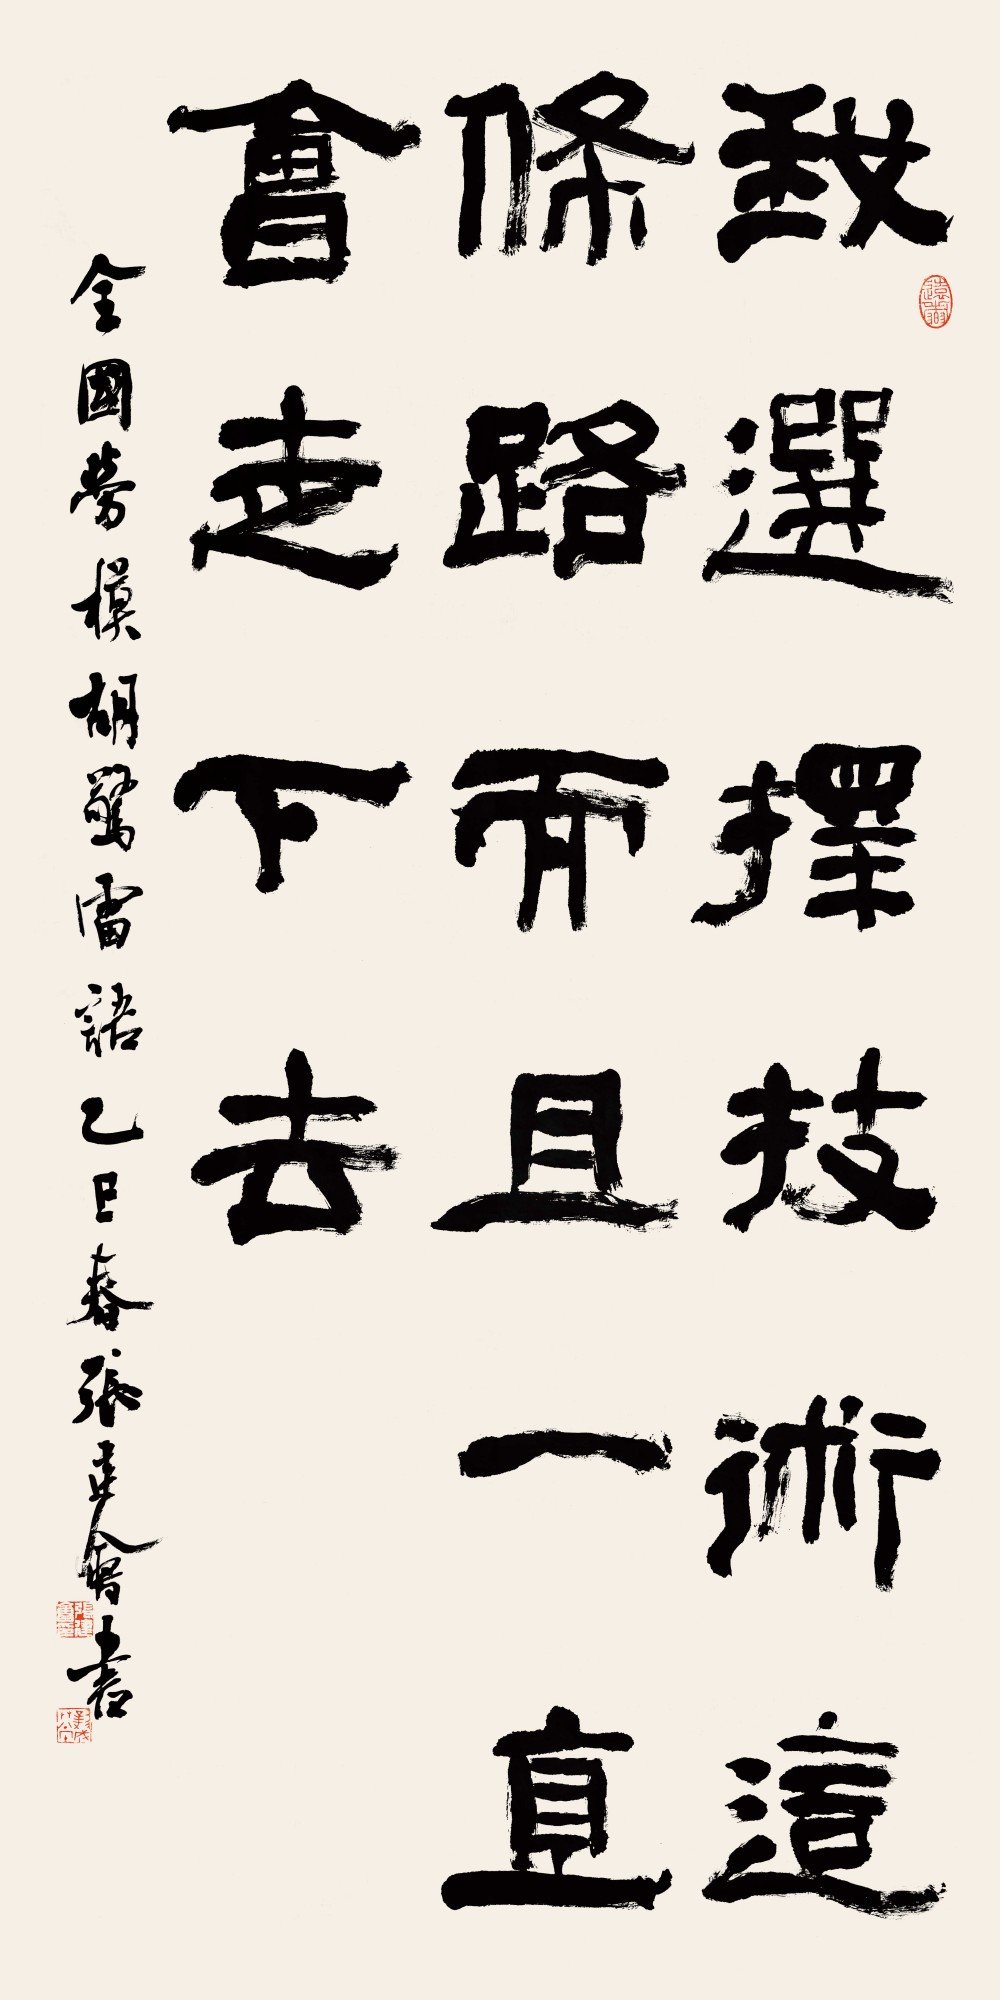 我選擇技術這
條路而且一直
會走下去
全國勞模胡驚雷語乙巳春張建會書